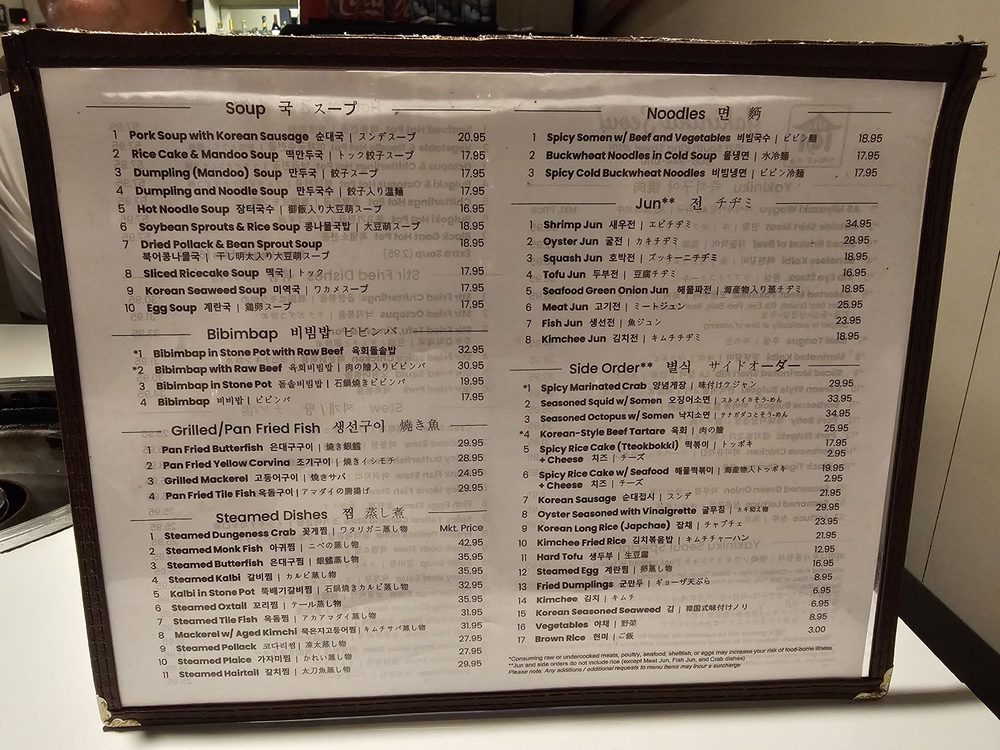 Soup 국 スープ
1 Pork Soup with Korean Sausage 순대국 | スンデスープ 20.95
2 Rice Cake & Mandoo Soup 떡만두국 | トック餃子スープ 17.95
3 Dumpling (Mandoo) Soup 만두국 | 餃子スープ 17.95
4 Dumpling and Noodle Soup 만두국수 | 餃子入り温麺 17.95
5 Hot Noodle Soup 장터국수 | 御飯入り大豆萌スープ 16.95
6 Soybean Sprouts & Rice Soup 콩나물국밥 | 大豆萌スープ 18.95
7 Dried Pollack & Bean Sprout Soup 18.95
북어콩나물국 | 干し明太入り大豆萌スープ
8 Sliced Ricecake Soup 떡국 | トック 17.95
9 Korean Seaweed Soup 미역국 | ワカメスープ 17.95
10 Egg Soup 계란국 | 鶏卵スープ 17.95
Bibimbap 비빔밥 ビビンバ
*1 Bibimbap in Stone Pot with Raw Beef 육회돌솥밥 32.95
*2 Bibimbap with Raw Beef 육회비빔밥 | 肉の膾入りビビンバ 30.95
3 Bibimbap in Stone Pot 돌솥비빔밥 | 石鍋焼きビビンバ 19.95
4 Bibimbap 비빔밥 | ビビンバ 17.95
Grilled/Pan Fried Fish 생선구이 燒き魚
1 Pan Fried Butterfish 은대구구이 | 燒き銀鱈 29.95
2 Pan Fried Yellow Corvina 조기구이 | 燒きイシモチ 28.95
3 Grilled Mackerel 고등어구이 | 燒きサバ 24.95
4 Pan Fried Tile Fish 옥돔구이 | アマダイの唐揚げ 29.95
Steamed Dishes 찜 蒸し煮
1 Steamed Dungeness Crab 꽃게찜 | ワタリガニ蒸し物 Mkt. Price
2 Steamed Monk Fish 아귀찜 | ニベの蒸し物 42.95
3 Steamed Butterfish 은대구찜 | 銀鱈蒸し物 35.95
4 Steamed Kalbi 갈비찜 | カルビ蒸し物 35.95
5 Kalbi in Stone Pot 뚝배기갈비찜 | 石鍋燒きカルビ蒸し物 32.95
6 Steamed Oxtail 꼬리찜 | テール蒸し物 35.95
7 Steamed Tile Fish 옥돔찜 | アカアマダイ蒸し物 31.95
8 Mackerel w/ Aged Kimchi 묵은지고등어찜 | キムチサバ蒸し物 31.95
9 Steamed Pollack 코다리찜 | 凍太蒸し物 27.95
10 Steamed Plaice 가자미찜 | かれい蒸し物 27.95
11 Steamed Hairtail 갈치찜 | 太刀魚蒸し物 29.95
Noodles 면 麵
1 Spicy Somen w/ Beef and Vegetables 비빔국수 | ビビン麺 18.95
2 Buckwheat Noodles in Cold Soup 물냉면 | 水冷麺 17.95
3 Spicy Cold Buckwheat Noodles 비빔냉면 | ビビン冷麺 17.95
Jun** 전 チヂミ
1 Shrimp Jun 새우전 | エビチヂミ 34.95
2 Oyster Jun 굴전 | カキチヂミ 28.95
3 Squash Jun 호박전 | ズッキーニチヂミ 18.95
4 Tofu Jun 두부전 | 豆腐チヂミ 16.95
5 Seafood Green Onion Jun 해물파전 | 海産物入り葱チヂミ 18.95
6 Meat Jun 고기전 | ミートジュン 25.95
7 Fish Jun 생선전 | 魚ジュン 23.95
8 Kimchee Jun 김치전 | キムチチヂミ 18.95
Side Order** 별식 サイドオーダー
*1 Spicy Marinated Crab 양념게장 | 味付けケジャン 29.95
2 Seasoned Squid w/ Somen 오징어소면 | スルメイカそうめん 33.95
3 Seasoned Octopus w/ Somen 낙지소면 | テナガダコとそうめん 34.95
*4 Korean-Style Beef Tartare 육회 | 肉の膾 25.95
5 Spicy Rice Cake (Tteokbokki) 떡볶이 | トッポキ 17.95
+ Cheese 치즈 | チーズ 2.95
6 Spicy Rice Cake w/ Seafood 해물떡볶이 | 海産物入トッポキ 19.95
+ Cheese 치즈 | チーズ 2.95
7 Korean Sausage 순대접시 | スンデ 21.95
8 Oyster Seasoned with Vinaigrette 굴무침 | カキ和え物 29.95
9 Korean Long Rice (Japchae) 잡채 | チャプチェ 23.95
10 Kimchee Fried Rice 김치볶음밥 | キムチチャーハン 21.95
11 Hard Tofu 생두부 | 生豆腐 12.95
12 Steamed Egg 계란찜 | 卵蒸し物 16.95
13 Fried Dumplings 군만두 | ギョーザ天ぷら 8.95
14 Kimchee 김치 | キムチ 6.95
15 Korean Seasoned Seaweed 김 | 韓国式味付けノリ 6.95
16 Vegetables 야채 | 野菜 8.95
17 Brown Rice 현미 | ご飯 3.00
*Consuming raw or undercooked meats, poultry, seafood, shellfish, or eggs may increase your risk of food-borne illness.
**Jun and side orders do not include rice (except Meat Jun, Fish Jun, and Crab dishes)
Please note: Any additions / additional requests to menu items may incur a surcharge